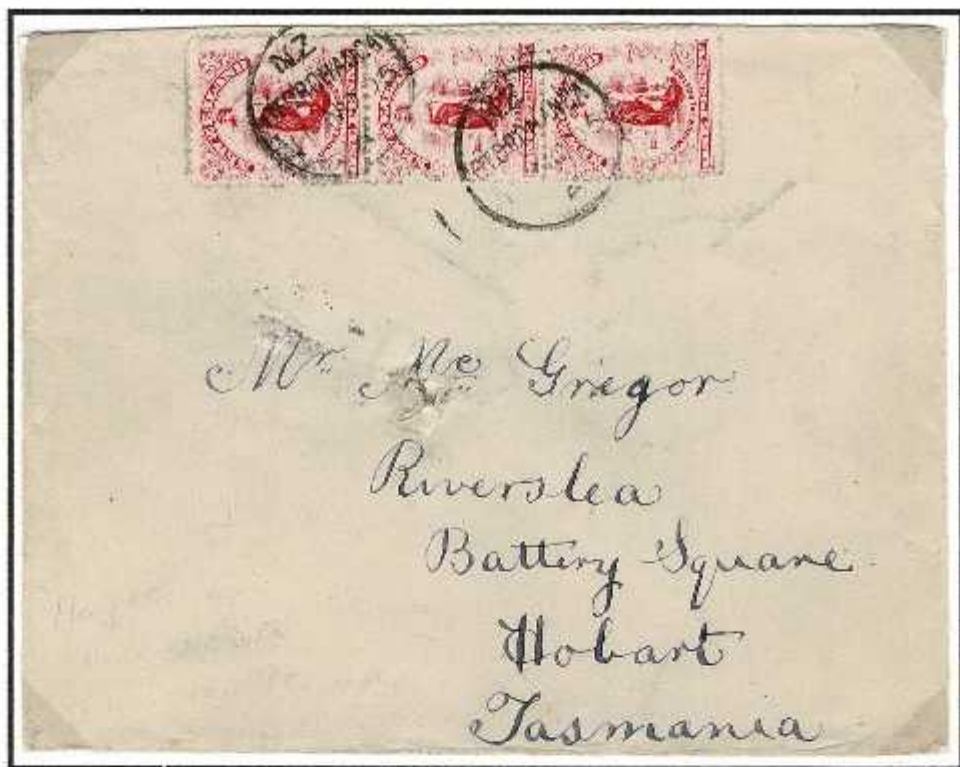 NZ
NZ
Mr. Mc Gregor
Riverslea
Battery Square
Hobart
Tasmania